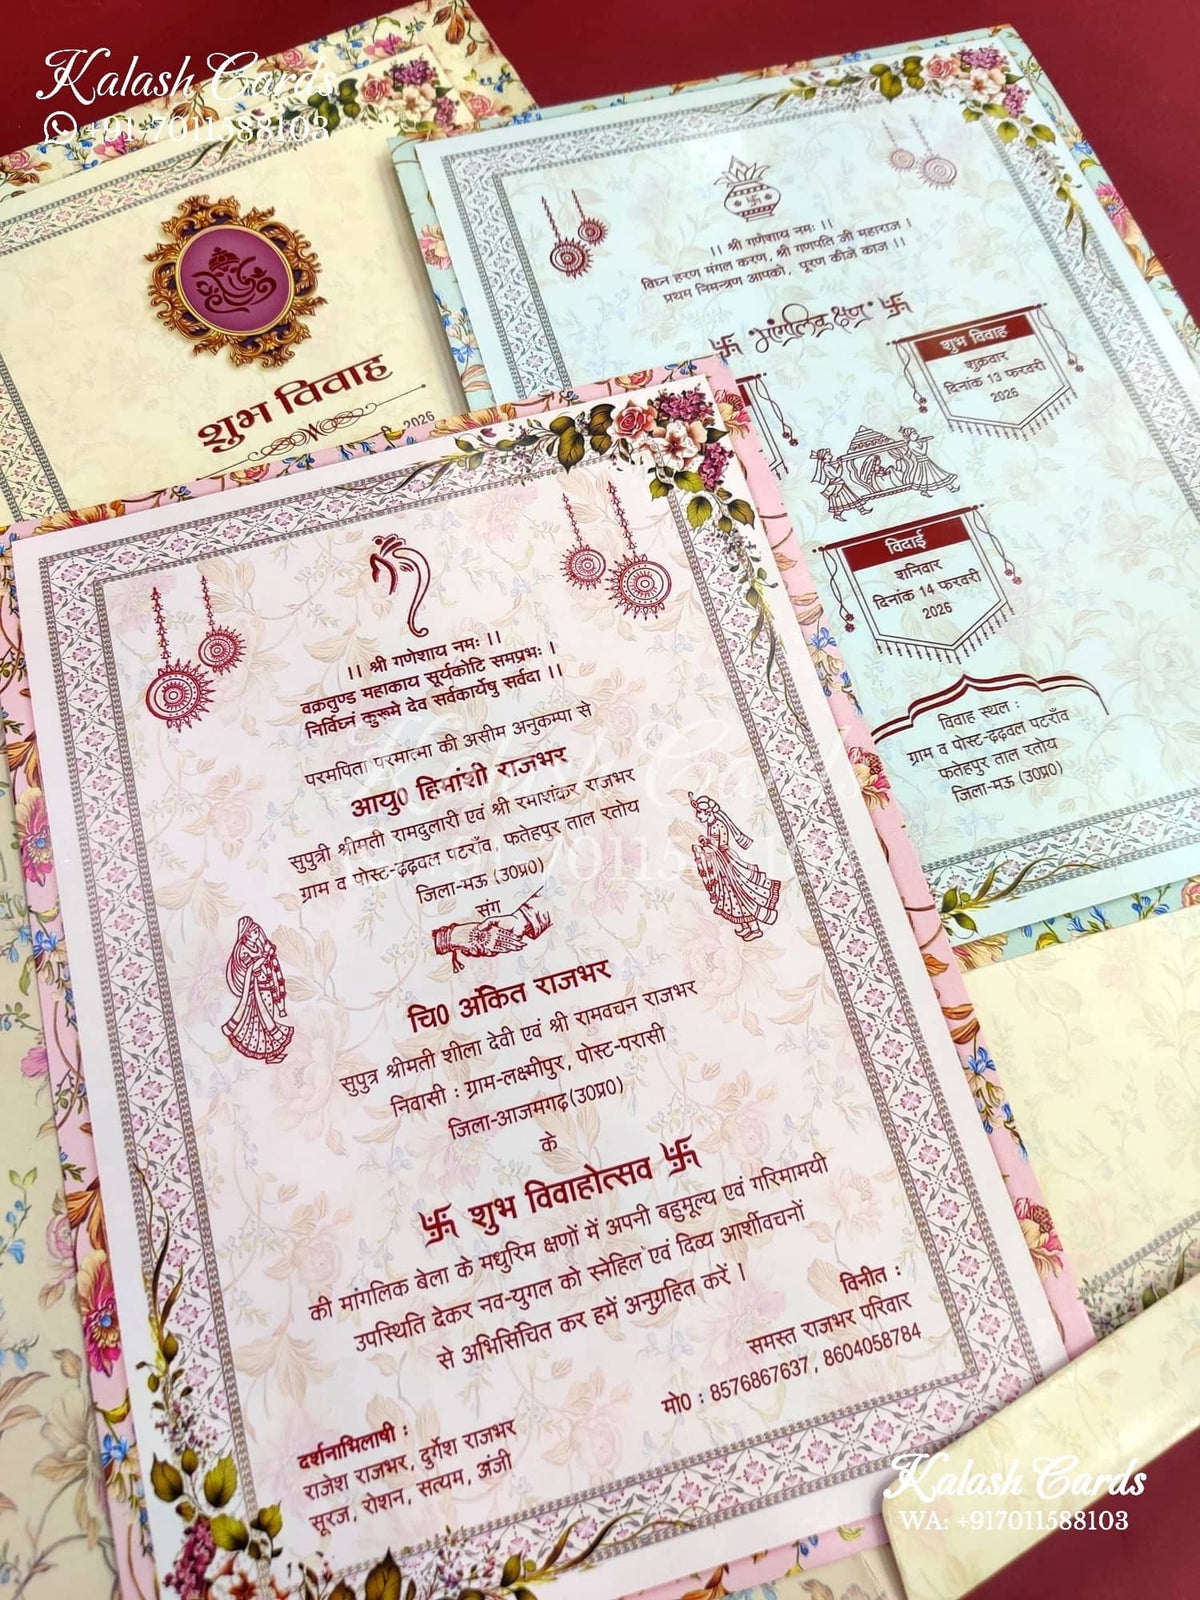 Kalash Cards
+91-7011588103
शुभ विवाह
2026
।। श्री गणेशाय नमः ।।
विघ्न हरण मंगल करण, श्री गणपति जी महाराज।
प्रथम निमन्त्रण आपको, पूरण कीजे काज ।।
मांगलिक क्षण
शुभ विवाह
शुक्रवार
दिनांक 13 फरवरी
2026
विदाई
शनिवार
दिनांक 14 फरवरी
2026
विवाह स्थल :
ग्राम व पोस्ट-ढ़ढ़वल पटराँव
फतेहपुर ताल रतोय
जिला-मऊ (उ0प्र0)
।। श्री गणेशाय नमः ।।
वक्रतुण्ड महाकाय सूर्यकोटि समप्रभः।
निर्विघ्नं कुरूमे देव सर्वकार्येषु सर्वदा ।।
परमपिता परमात्मा की असीम अनुकम्पा से
आयु0 हिमांशी राजभर
सुपुत्री श्रीमती रामदुलारी एवं श्री रमाशंकर राजभर
ग्राम व पोस्ट-ढ़ढ़वल पटराँव, फतेहपुर ताल रतोय
जिला-मऊ (उ0प्र0)
संग
चि0 अंकित राजभर
सुपुत्र श्रीमती शीला देवी एवं श्री रामवचन राजभर
निवासी : ग्राम-लक्ष्मीपुर, पोस्ट-परासी
जिला-आजमगढ़(उ0प्र0)
के
शुभ विवाहोत्सव
की मांगलिक बेला के मधुरिम क्षणों में अपनी बहुमूल्य एवं गरिमामयी
उपस्थिति देकर नव-युगल को स्नेहिल एवं दिव्य आर्शीवचनों
से अभिसिंचित कर हमें अनुग्रहित करें।
विनीत :
समस्त राजभर परिवार
मो0 : 8576867637, 8604058784
दर्शनाभिलाषी :
राजेश राजभर, दुर्गेश राजभर
सूरज, रोशन, सत्यम, अंजी
Kalash Cards
WA: +917011588103